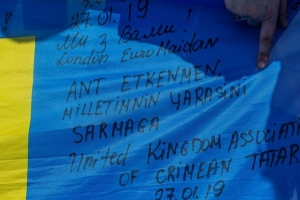 27.01.19
Ми з Вами!
London EuroMaidan
ANT ETKENMEN
MILLETIMNIN YARASINI
SARMAGA
United KINGDOM ASSOCIAT
OF CRIMEAN TATAR
27.01.19